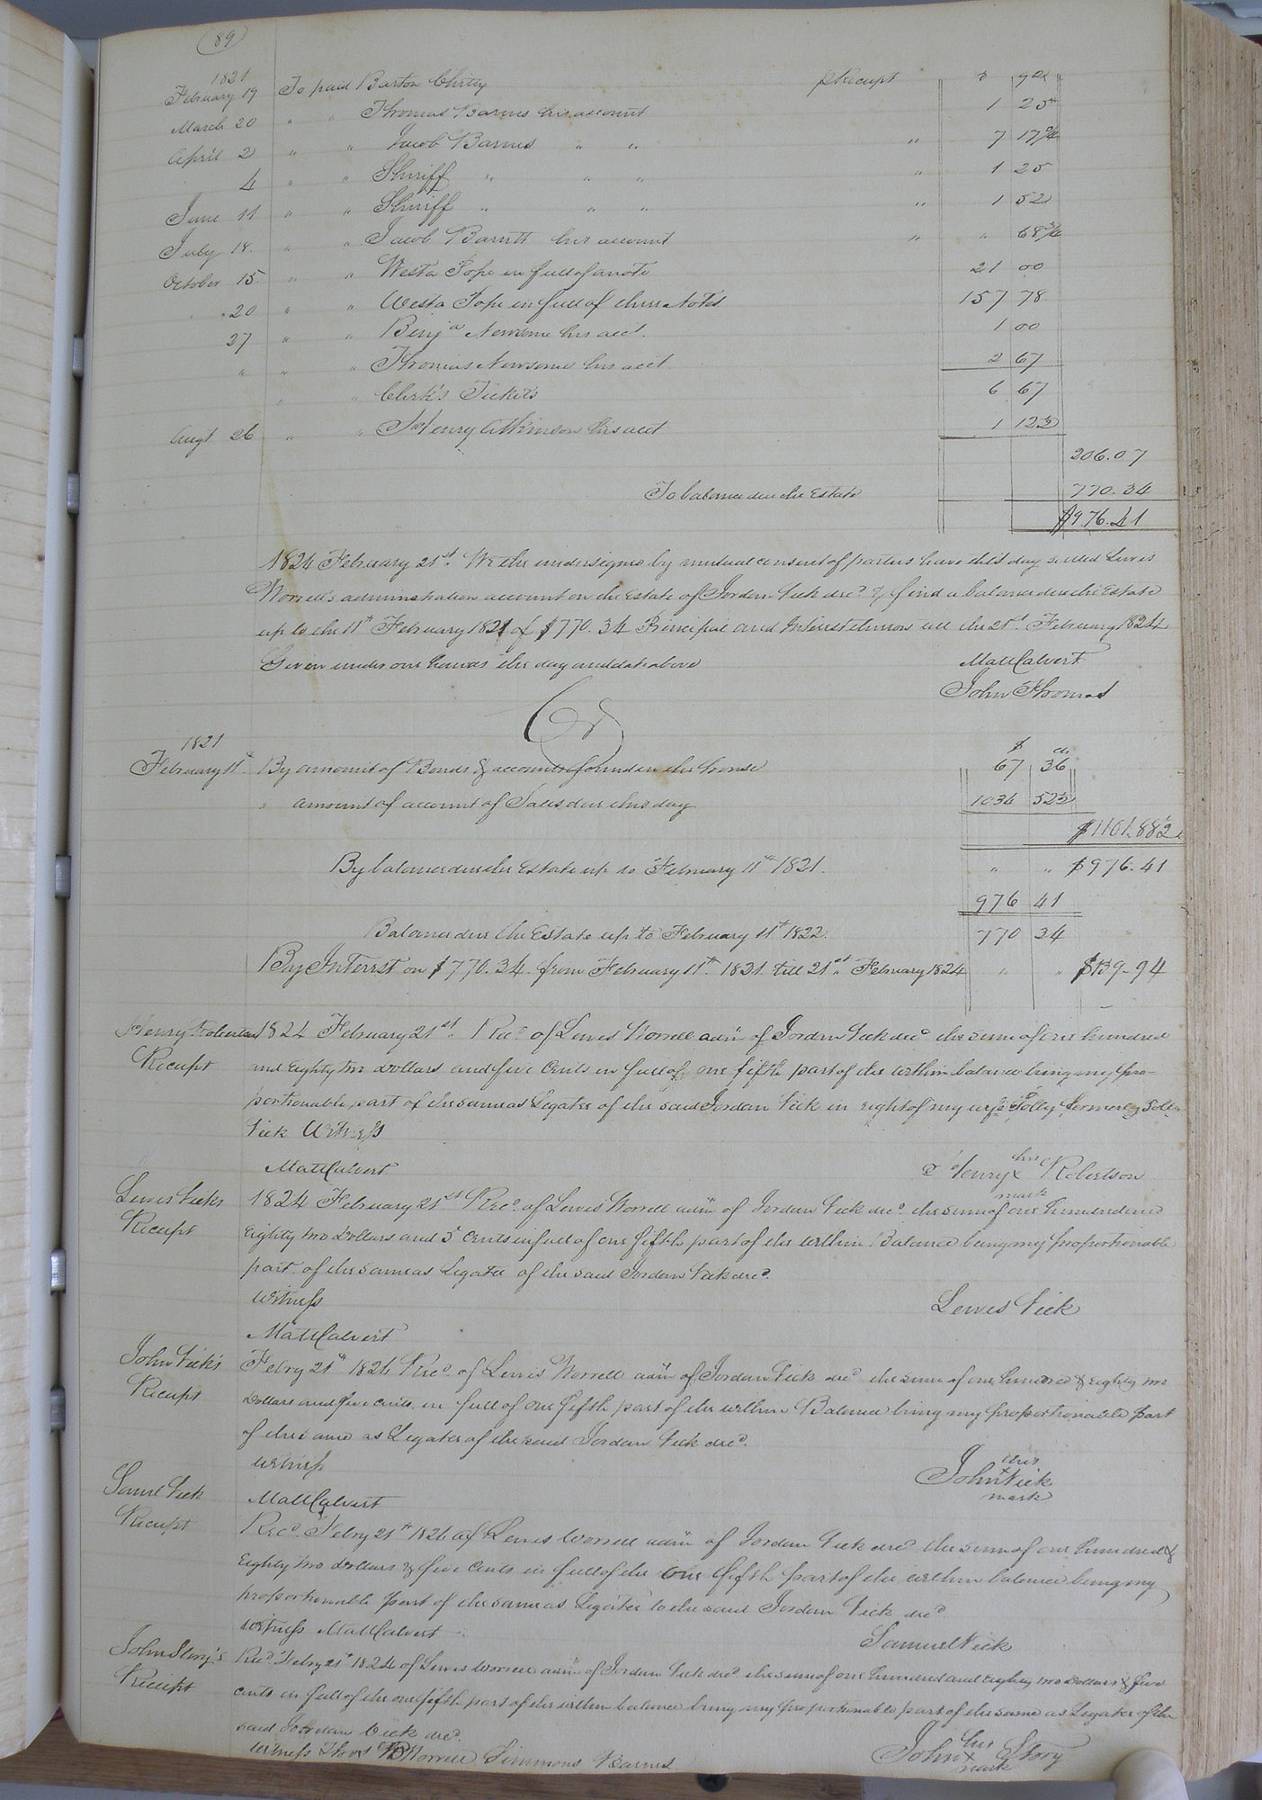 89
1821
February 19 To paid Barton Christy p Receipt
March 20 " " Thomas Barnes his account 1 25
April 2 " " Jacob Barnes " " " 7 17
4 " " Sheriff " " " " 1 25
June 11 " " Sheriff " " " " 1 52
July 18 " " Jacob Barrett his account " " 68¾
October 15 " " Westa Pope in full of a note 21 00
" 20 " " Westa Pope in full of three Notes 157 78
27 " " Benja Newsome his acct. 1 00
" " " Thomas Newsome his acct 2 67
" " Clerk's Tickets 6 67
Augt 26 " " Henry Atkinson his acct 1 12½
206.07
To balance due the Estate 770.34
$976.41
1824 February 21st. We the undersigned by mutual consent of parties have this day settled Lewis
Worrell's administration account on the Estate of Jordan Vick decd & find a balance due the Estate
up to the 11th February 1821 of $770.34 Principal and Interest thereon till the 21st February 1824
Given under our hands the day and date above
Matt Calvert
John Thomas
Cr
1821 $ cts
February 11th By amount of Bonds & accounts found in the house 67 36
" amount of account of Sales due this day 1034 52½
$1101.88½
By balance due the Estate up to February 11th 1821. " " $976.41
976 41
Balance due the Estate up to February 11th 1822. 770 34
By Interest on $770.34 from February 11th 1821 till 21st February 1824 " " $139-94
Henry Robertson 1824 February 21st. Recd of Lewis Worrell adm of Jordan Vick decd the sum of one hundred
Receipt and Eighty two Dollars and five Cents in full of one fifth part of the within balance being my pro-
portionable part of the same as Legatee of the said Jordan Vick in right of my wife Polly formerly Polly
Vick Witness
Matt Calvert Henry his x mark Robertson
Lewis Vicks 1824 February 21st Recd of Lewis Worrell adm of Jordan Vick decd the sum of one hundred and
Receipt Eighty two Dollars and 5 Cents in full of one fifth part of the within Balance being my proportionable
part of the same as Legatee of the said Jordan Vick decd.
Witness Lewis Vick
Matt Calvert
John Vick's Febry 21st 1824 Recd of Lewis Worrell adm of Jordan Vick decd the sum of one hundred & eighty two
Receipt Dollars and five Cents in full of one fifth part of the within Balance being my proportionable part
of the same as Legatee of the said Jordan Vick decd.
Witness John his x mark Vick
Saml Vick Matt Calvert
Receipt Recd Febry 21st 1824 of Lewis Worrell adm of Jordan Vick decd the sum of one hundred &
Eighty two Dollars & five Cents in full of the one fifth part of the within balance being my
proportionable part of the same as Legatee to the said Jordan Vick decd
Witness Matt Calvert Samuel Vick
John Story's Recd Febry 21st 1824 of Lewis Worrell adm of Jordan Vick decd the sum of one hundred and eighty two Dollars & five
Receipt cents in full of the one fifth part of the within balance being my proportionable part of the same as Legatee of the
said Jordan Vick decd.
Witness Thos Worrell Simmons Barnes John his x mark Story